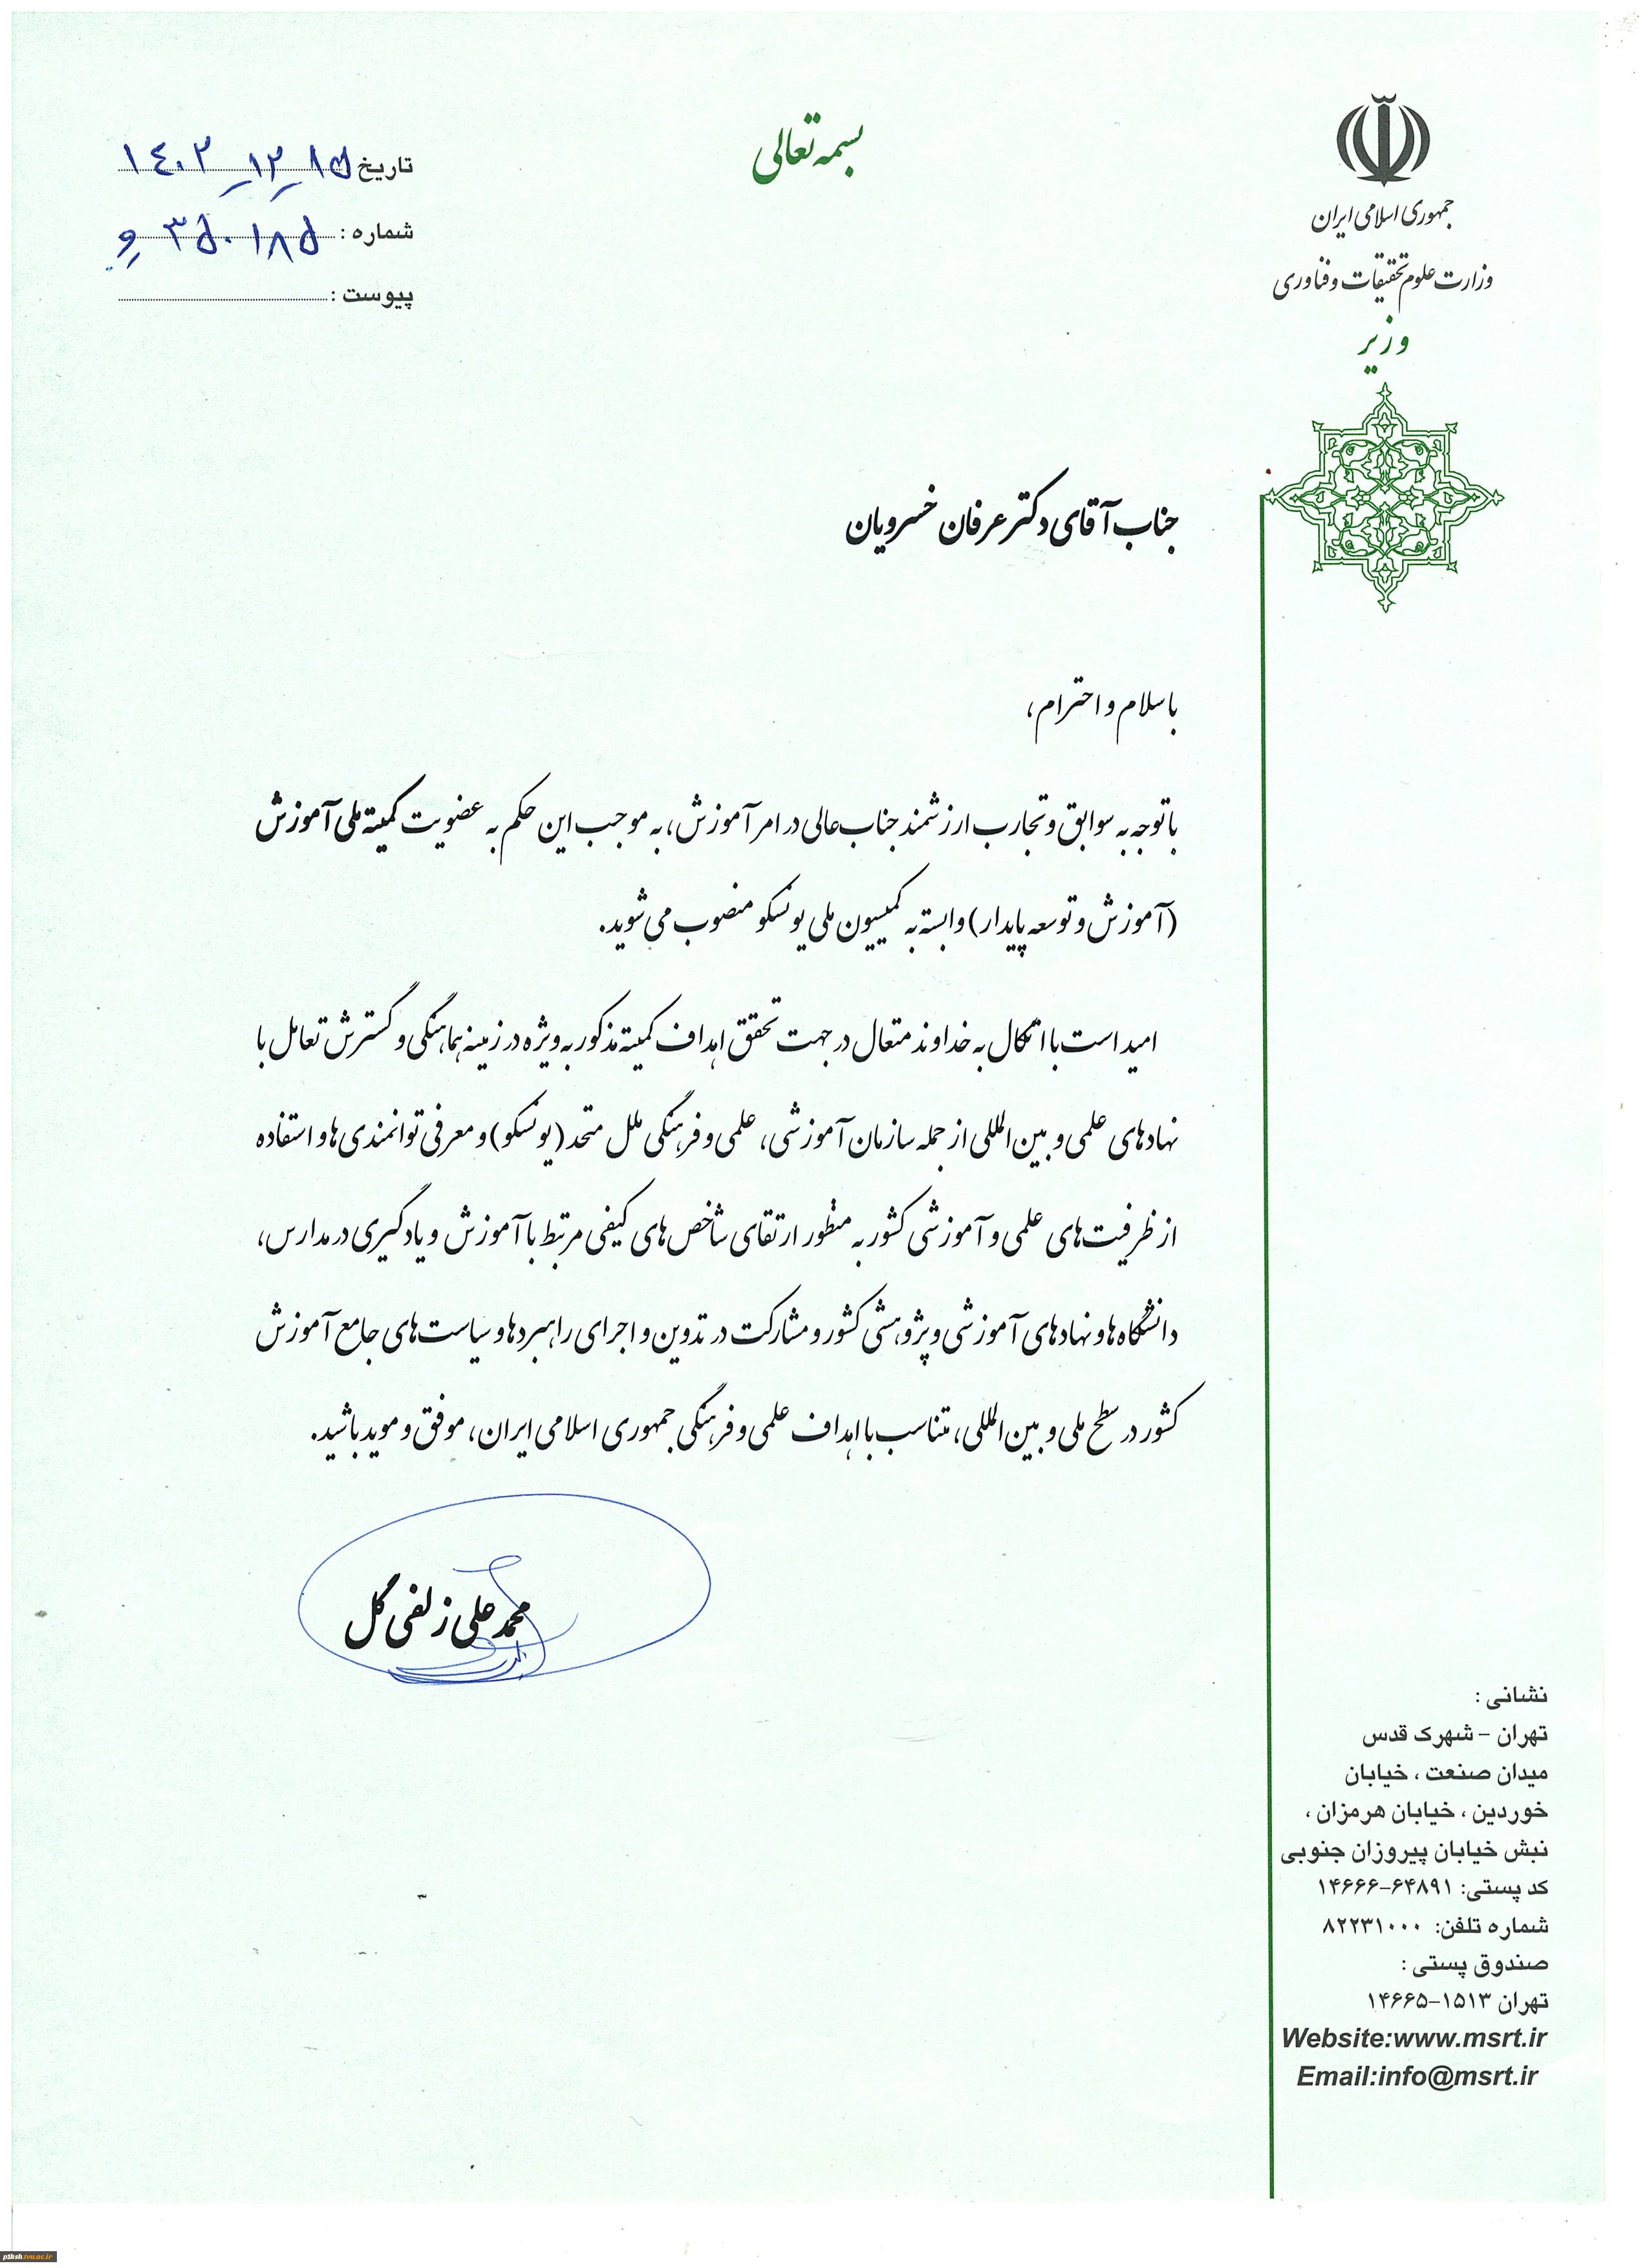 بسمه تعالی
جمهوری اسلامی ایران
وزارت علوم تحقیقات و فناوری
وزیر
تاریخ ۱۴۰۲-۱۲-۱۵
شماره : ۳۵۰۱۸۵ و
پیوست :
جناب آقای دکتر عرفان خسرویان
با سلام و احترام،
با توجه به سوابق و تجارب ارزشمند جناب‌عالی در امر آموزش، به موجب این حکم به عضویت کمیته ملی آموزش
(آموزش و توسعه پایدار) وابسته به کمیسیون ملی یونسکو منصوب می‌شوید.
امید است با اتکال به خداوند متعال در جهت تحقق اهداف کمیته مذکور به ویژه در زمینه هماهنگی و گسترش تعامل با
نهادهای علمی و بین‌المللی از جمله سازمان آموزشی، علمی و فرهنگی ملل متحد (یونسکو) و معرفی توانمندی‌ها و استفاده
از ظرفیت‌های علمی و آموزشی کشور به منظور ارتقای شاخص‌های کیفی مرتبط با آموزش و یادگیری در مدارس،
دانشگاه‌ها و نهادهای آموزشی و پژوهشی کشور و مشارکت در تدوین و اجرای راهبردها و سیاست‌های جامع آموزش
کشور در سطح ملی و بین‌المللی، متناسب با اهداف علمی و فرهنگی جمهوری اسلامی ایران، موفق و موید باشید.
محمد علی زلفی گل
نشانی :
تهران - شهرک قدس
میدان صنعت ، خیابان
خوردین ، خیابان هرمزان ،
نبش خیابان پیروزان جنوبی
کد پستی: ۱۴۶۶۶-۶۴۸۹۱
شماره تلفن: ۸۲۲۳۱۰۰۰
صندوق پستی :
تهران ۱۵۱۳-۱۴۶۶۵
Website:www.msrt.ir
Email:info@msrt.ir
p1ksh.tvu.ac.ir